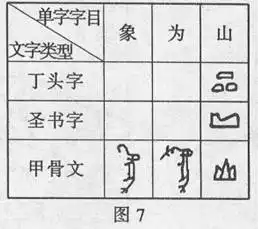 单字字目
文字类型
象 为 山
丁头字
圣书字
甲骨文
图7